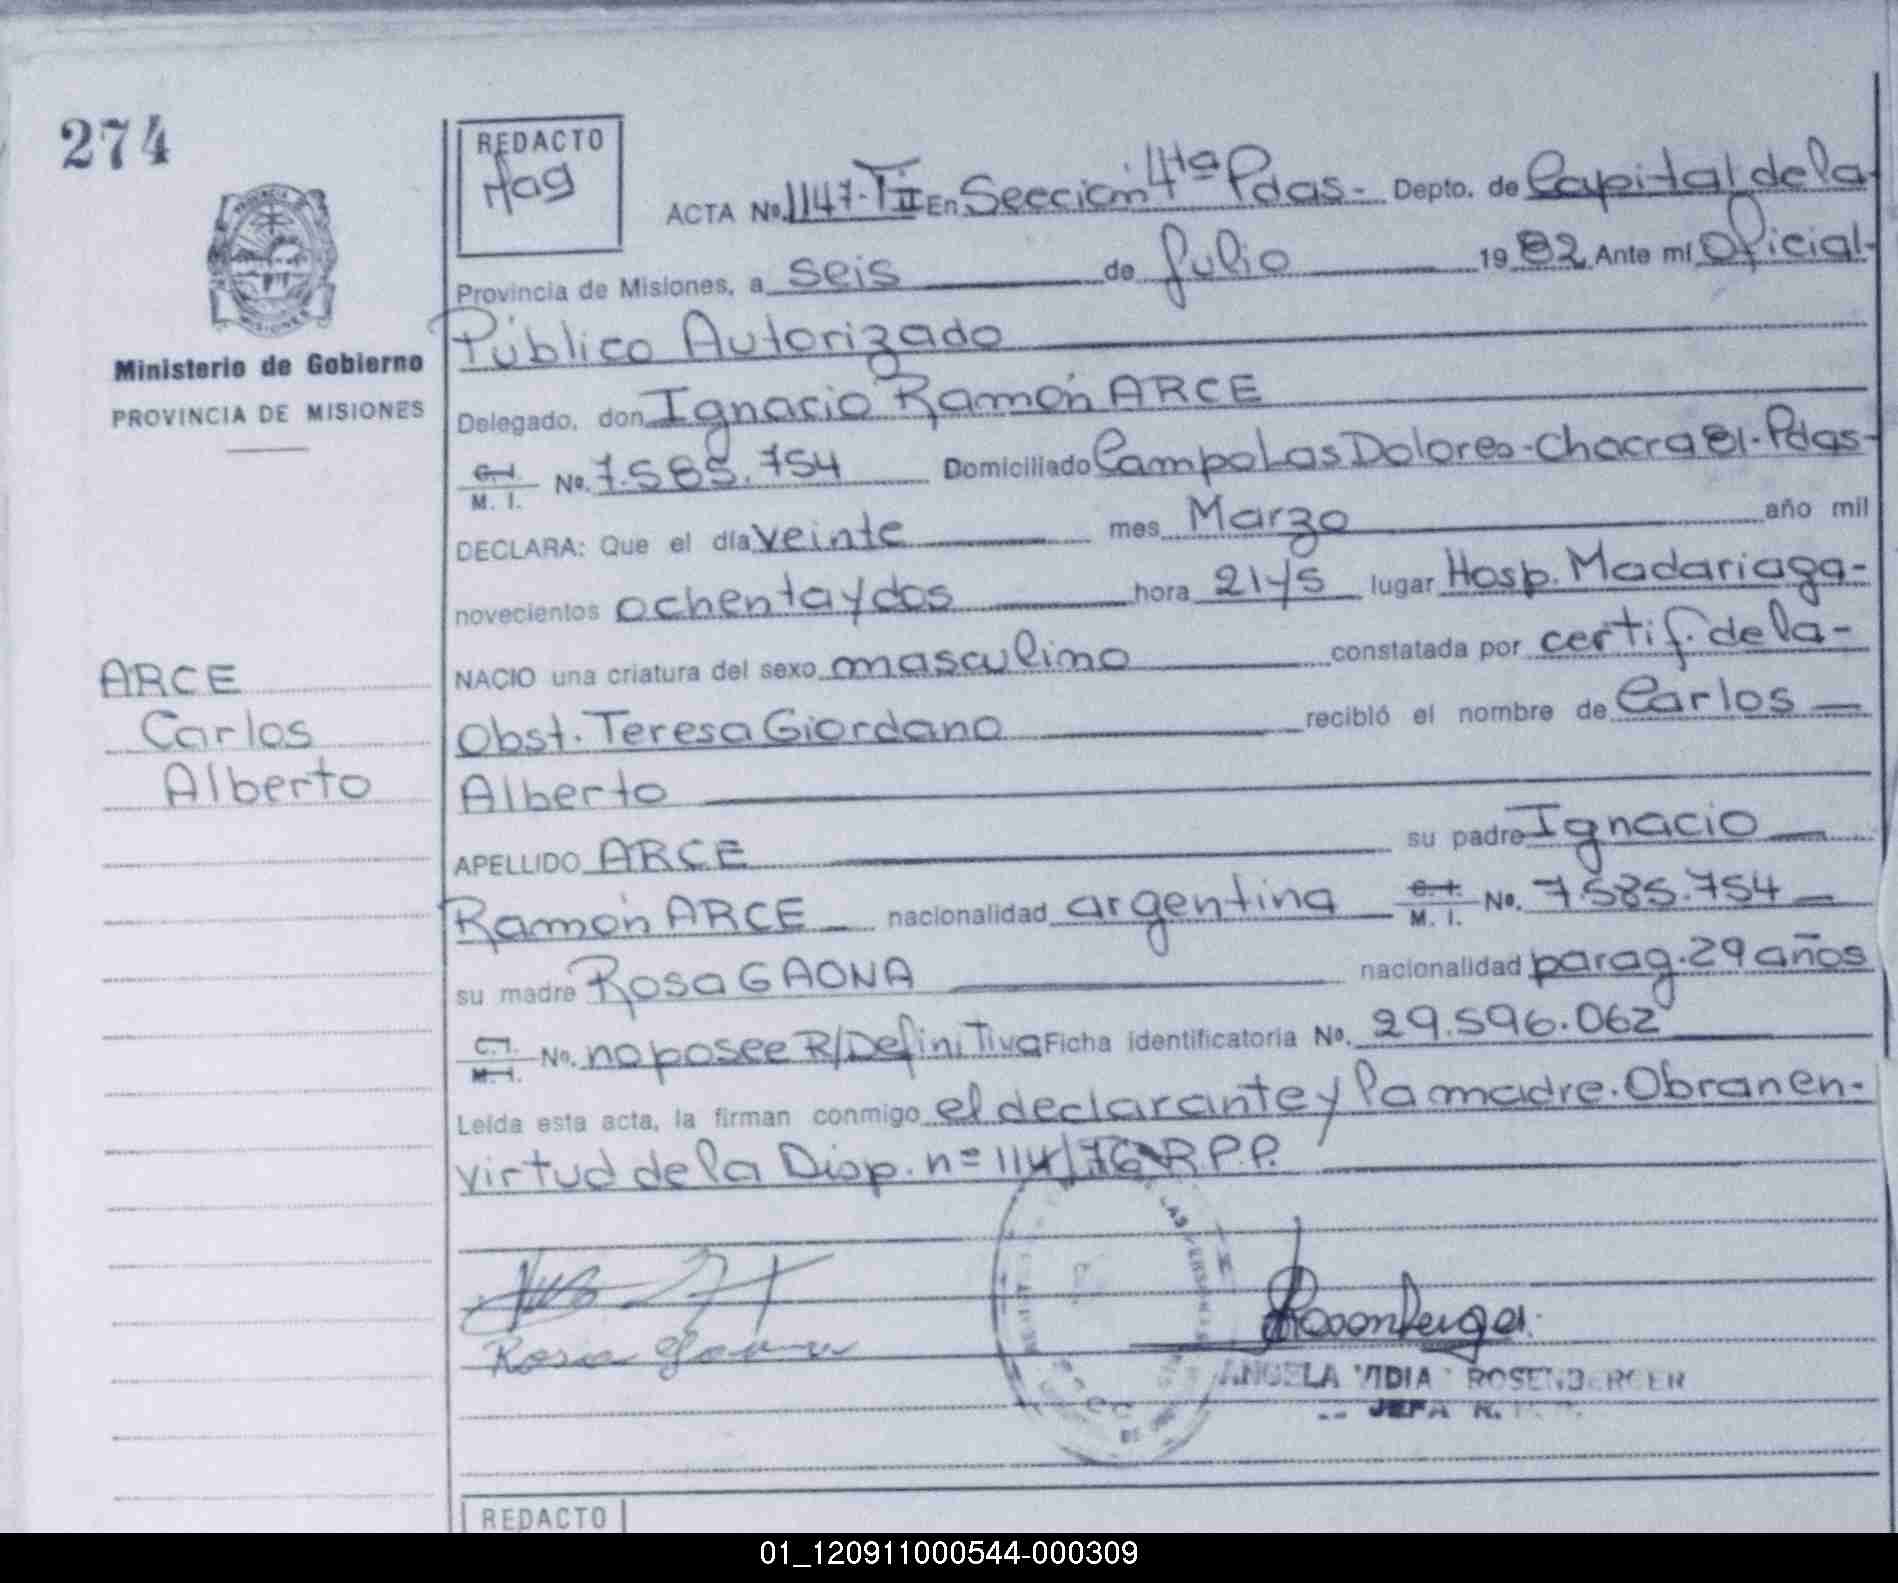 274
REDACTO
Hag
ACTA No. 1147-T II En Sección 4ta Pdas- Depto. de Capital de la
Provincia de Misiones, a seis de Julio 1982 Ante mí Oficial-
Público Autorizado
Ministerio de Gobierno
PROVINCIA DE MISIONES
Delegado, don Ignacio Ramón ARCE
C. I. M. I. No. 7.585.754 Domiciliado Campo Las Dolores-Chacra 81-Pdas-
DECLARA: Que el día veinte mes Marzo año mil
novecientos ochenta y dos hora 21 y 5 lugar Hosp. Madariaga-
NACIO una criatura del sexo masculino constatada por certif. de la-
Obst. Teresa Giordano recibió el nombre de Carlos
Alberto
ARCE
Carlos
Alberto
APELLIDO ARCE su padre Ignacio
Ramón ARCE nacionalidad argentina C. I. M. I. No. 7.585.754
su madre Rosa GAONA nacionalidad parag. 29 años
C. I. M. I. No. no posee R/Definitiva Ficha identificatoria No. 29.596.062
Leída esta acta, la firman conmigo el declarante y la madre. Obran en-
virtud de la Disp. nº 114/76 R.P.P.
Rosa Gaona
Rosenberger
ANGELA ROSENBERGER
JEFA
REDACTO
01_120911000544-000309